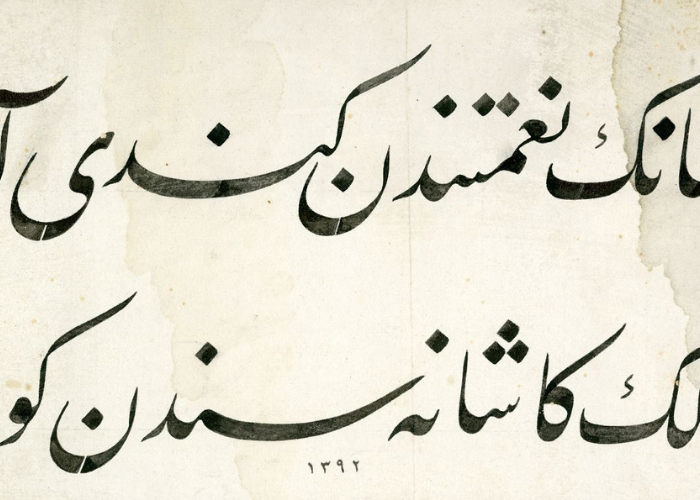 انك نعمتندن كندی آ
لك كاشانه سندن كو
١٣٩٢